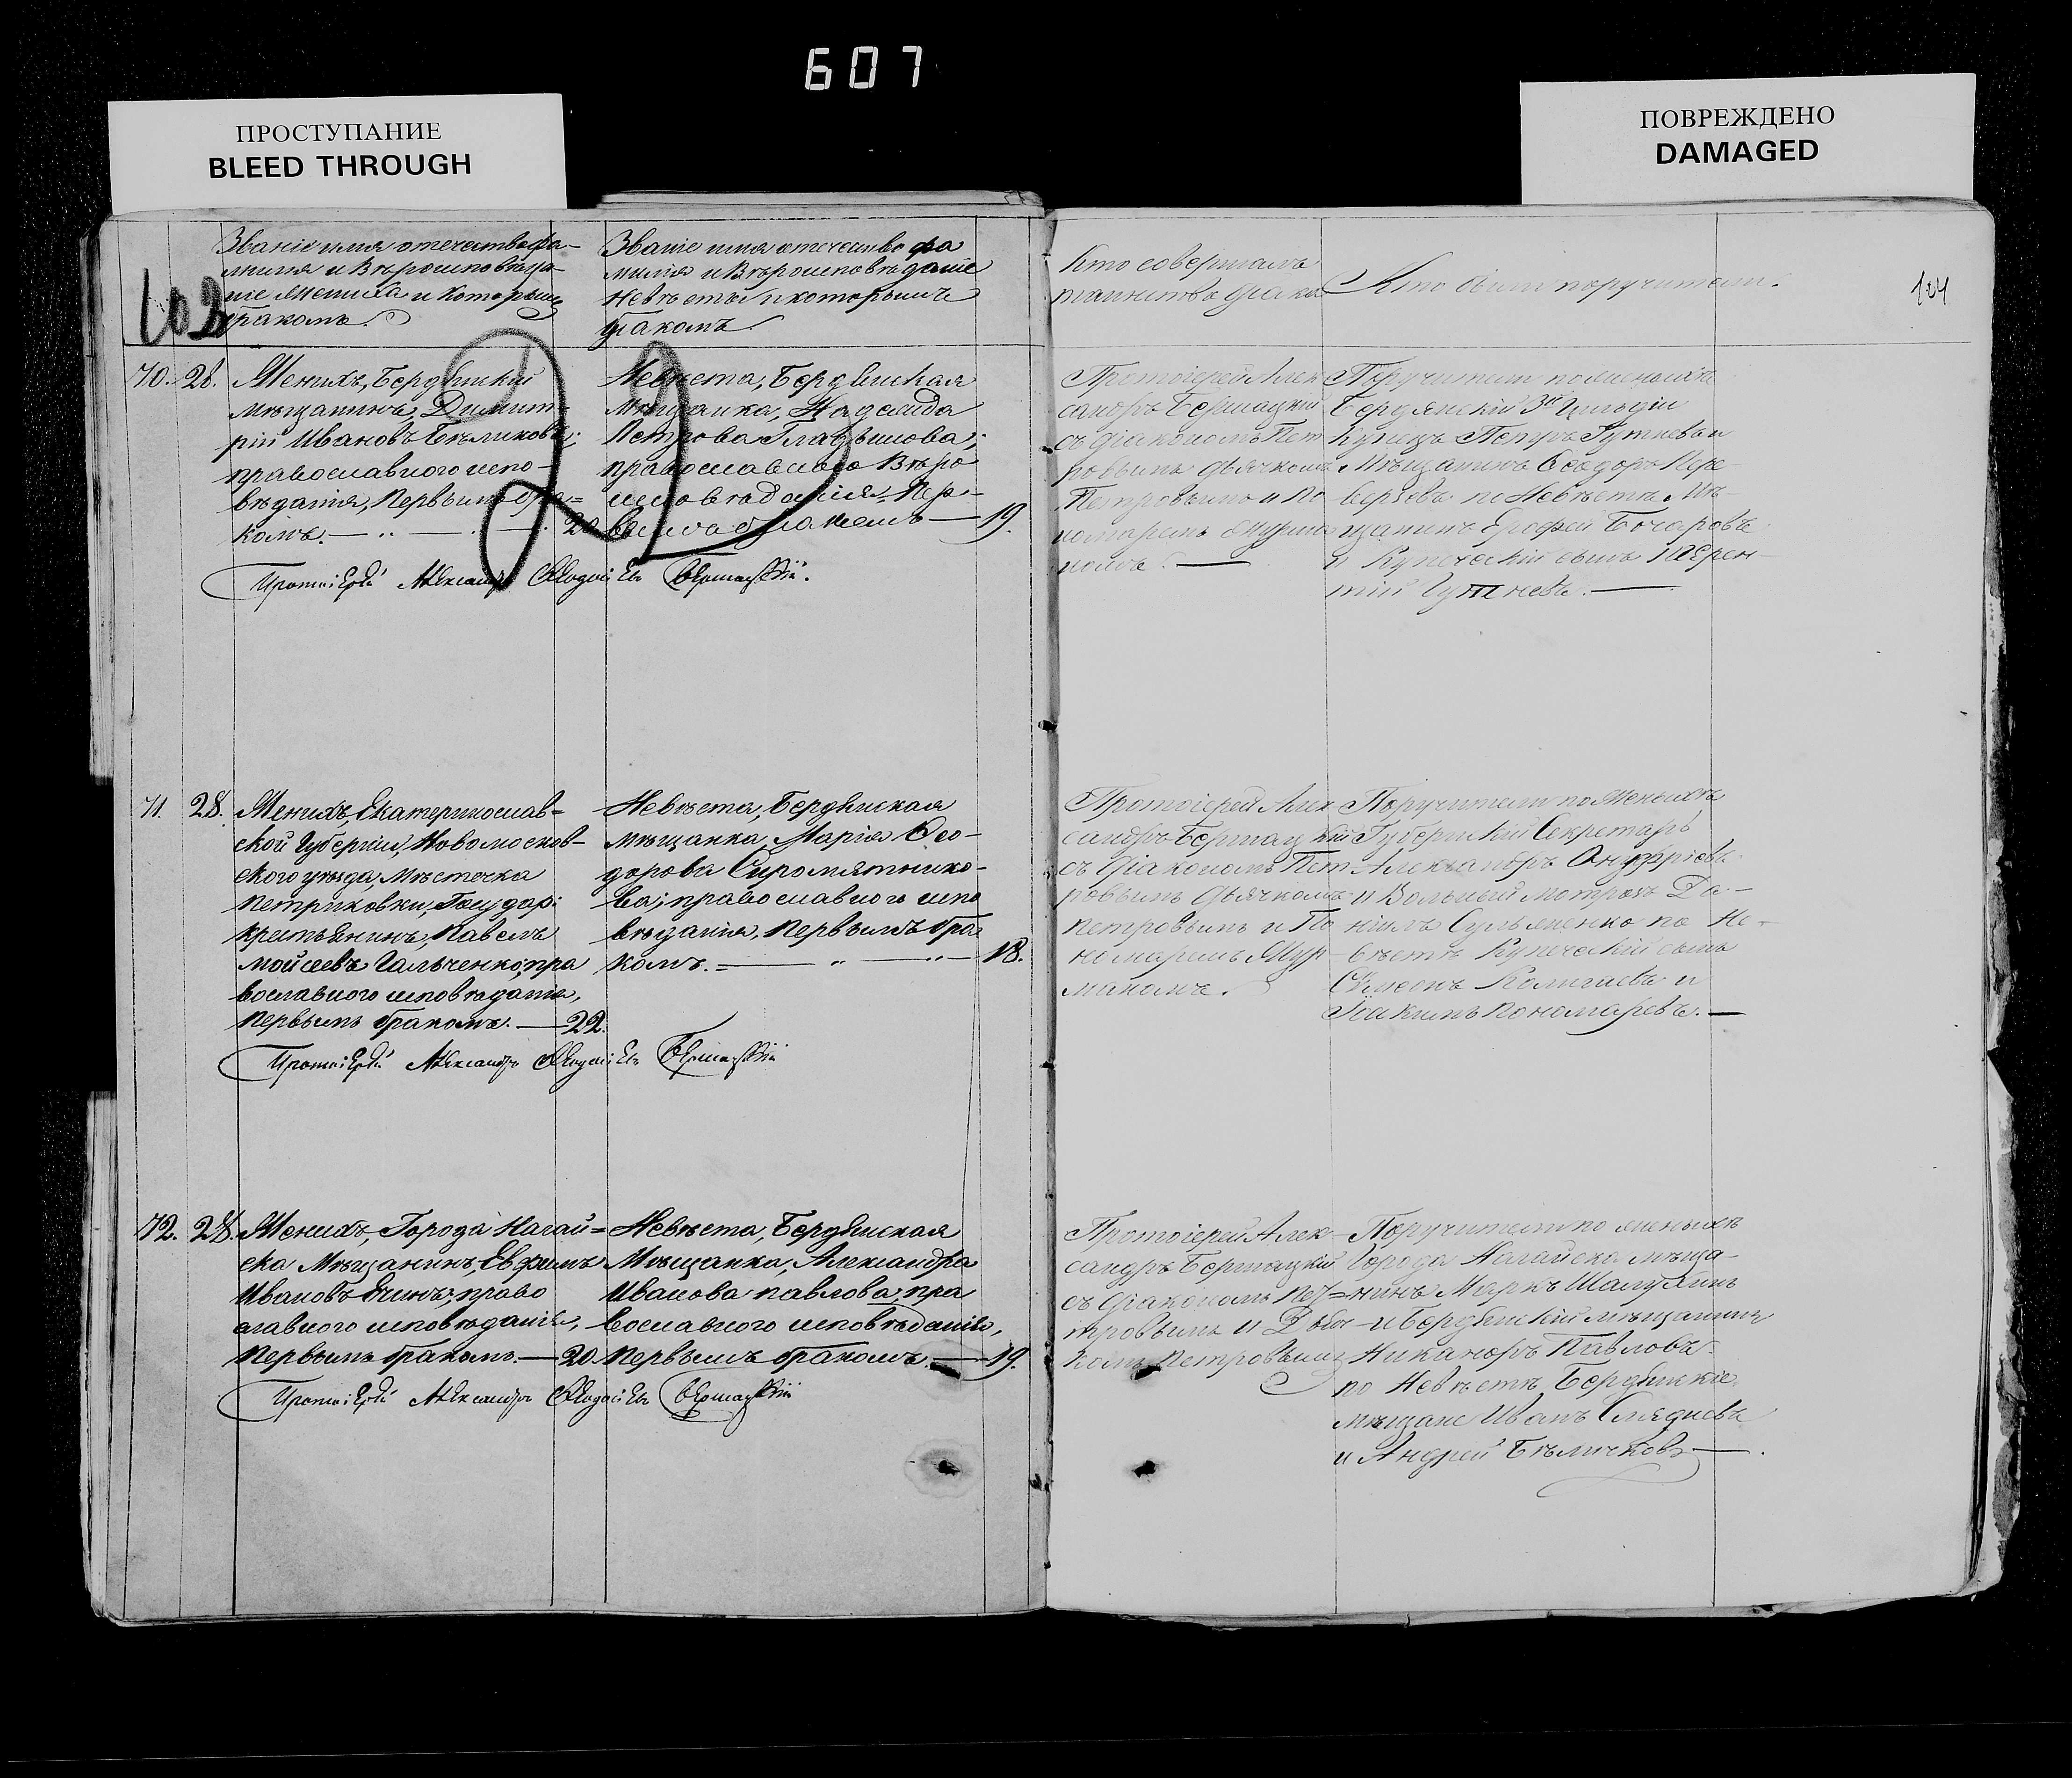 607
ПРОСТУПАНИЕ
BLEED THROUGH
ПОВРЕЖДЕНО
DAMAGED
Званіе имя отечество фа-
милія и Вѣроисповѣда-
ніе Жениха и которымъ
бракомъ.
Званіе имя отечество фа
милія и Вѣроисповѣданіе
Невѣсты и которымъ
бракомъ
Кто совершалъ
таинство брака
Кто были поручители.
104
70. 28. Женихъ, Бердянскій
мѣщанинъ, Димит-
рій Ивановъ Бѣликовъ;
православного испо-
вѣданія, Первымъ бра=
комъ. 20
Невѣста, Бердянская
Мѣщанка, Надежда
Петрова Гладышова;
православного Вѣро
исповѣданія Пер-
вымъ бракомъ 19.
Протоіерей Александръ
Протоіерей Алек
сандръ
съ діакономъ Пет
ровымъ дьячкомъ
Петровымъ и По
номаремъ
Поручители по женихѣ
Бердянскій 3й Гильдіи
Купецъ
Мѣщанинъ Ѳеодоръ
по Невѣстѣ Мѣ-
щанинъ Ерофей Бочаровъ
и Купеческій сынъ Лаврен-
тій
71. 28. Женихъ, Екатеринослав=
ской Губерніи, Новомосков-
ского уѣзда, Мѣстечка
Петриковки, Государ:
крестьянинъ, Павелъ
Мойсеевъ Гальченко; пра
вославного исповѣданія,
Первымъ бракомъ. 22.
Невѣста, Бердянская
мѣщанка, Марія Ѳео-
дорова Сиромятнико-
ва; православного испо
вѣданія, Первымъ бра
комъ. 18.
Протоіерей Александръ
Протоіерей Алек
сандръ
съ Діакономъ Пет
ровымъ дьячкомъ
Петровымъ и По
номаремъ
Поручители по Женихѣ
Губернскій Секретарь
Александръ Онуфріевъ
и Вольный матрозъ Да-
нилъ по Не-
вѣстѣ Купеческій сынъ
Сѵмеонъ и
Іоакимъ Пономаревъ.
72. 28. Женихъ, Города Нагай=
ска Мѣщанинъ, Евфимъ
Ивановъ право
славного исповѣданія,
Первымъ бракомъ. 20.
Невѣста, Бердянская
Мѣщанка, Александра
Иванова Павлова; пра
вославного исповѣданія,
Первымъ бракомъ. 19.
Протоіерей Александръ
Протоіерей Алек
сандръ
съ Діакономъ Пе=
тровымъ и Дьяч
комъ Петровымъ
Поручители по женихѣ
Города Нагайска мѣща-
нинъ Маркъ
и Бердянскій мѣщанинъ
Никаноръ Павловъ.
по Невѣстѣ Бердянскіе
мѣщане Иванъ
и Андрей Бѣличковъ